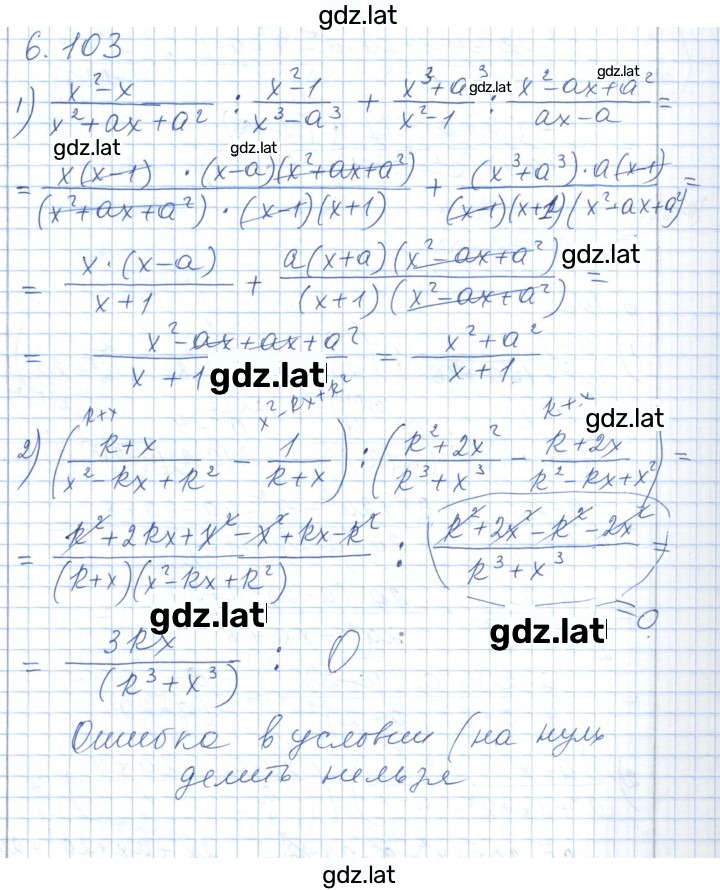 gdz.lat
6.103
1) (x²-x)/(x²+ax+a²) : (x²-1)/(x³-a³) + (x³+a³)/(x²-1) : (x²-ax+a²)/(ax-a) =
gdz.lat gdz.lat
gdz.lat gdz.lat
= (x(x-1)·(x-a)(x²+ax+a²))/((x²+ax+a²)·(x-1)(x+1)) + ((x³+a³)·a(x-1))/((x-1)(x+1)(x²-ax+a²)) =
= (x·(x-a))/(x+1) + (a(x+a)(x²-ax+a²))/((x+1)(x²-ax+a²)) =
gdz.lat
= (x²-ax+ax+a²)/(x+1) = (x²+a²)/(x+1)
gdz.lat
k+x x²-kx+k² k+x
gdz.lat
2) ((k+x)/(x²-kx+k²) - 1/(k+x)) : ((k²+2x²)/(k³+x³) - (k+2x)/(k²-kx+x²)) =
= (k²+2kx+x²-x²+kx-k²)/((k+x)(x²-kx+k²)) : ((k²+2x²-k²-2x²)/(k³+x³)) =
=0
gdz.lat gdz.lat
= 3kx/(k³+x³) : 0
Ошибка в условии (на нуль
делить нельзя
gdz.lat